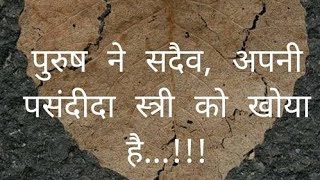 पुरुष ने सदैव, अपनी
पसंदीदा स्त्री को खोया
है...!!!